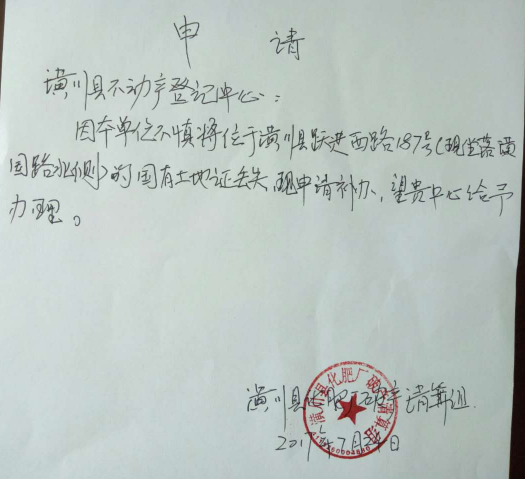 申 请
潢川县不动产登记中心：
因本单位不慎将位于潢川县跃进西路187号(现坐落潢
国路北侧)的国有土地证丢失,现申请补办,望贵中心给予
办理。
潢川县化肥厂破产清算组
2017年7月 日